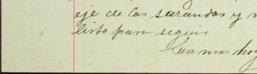 eje de las sarandas y
listo para seguir
Sin mas hoy